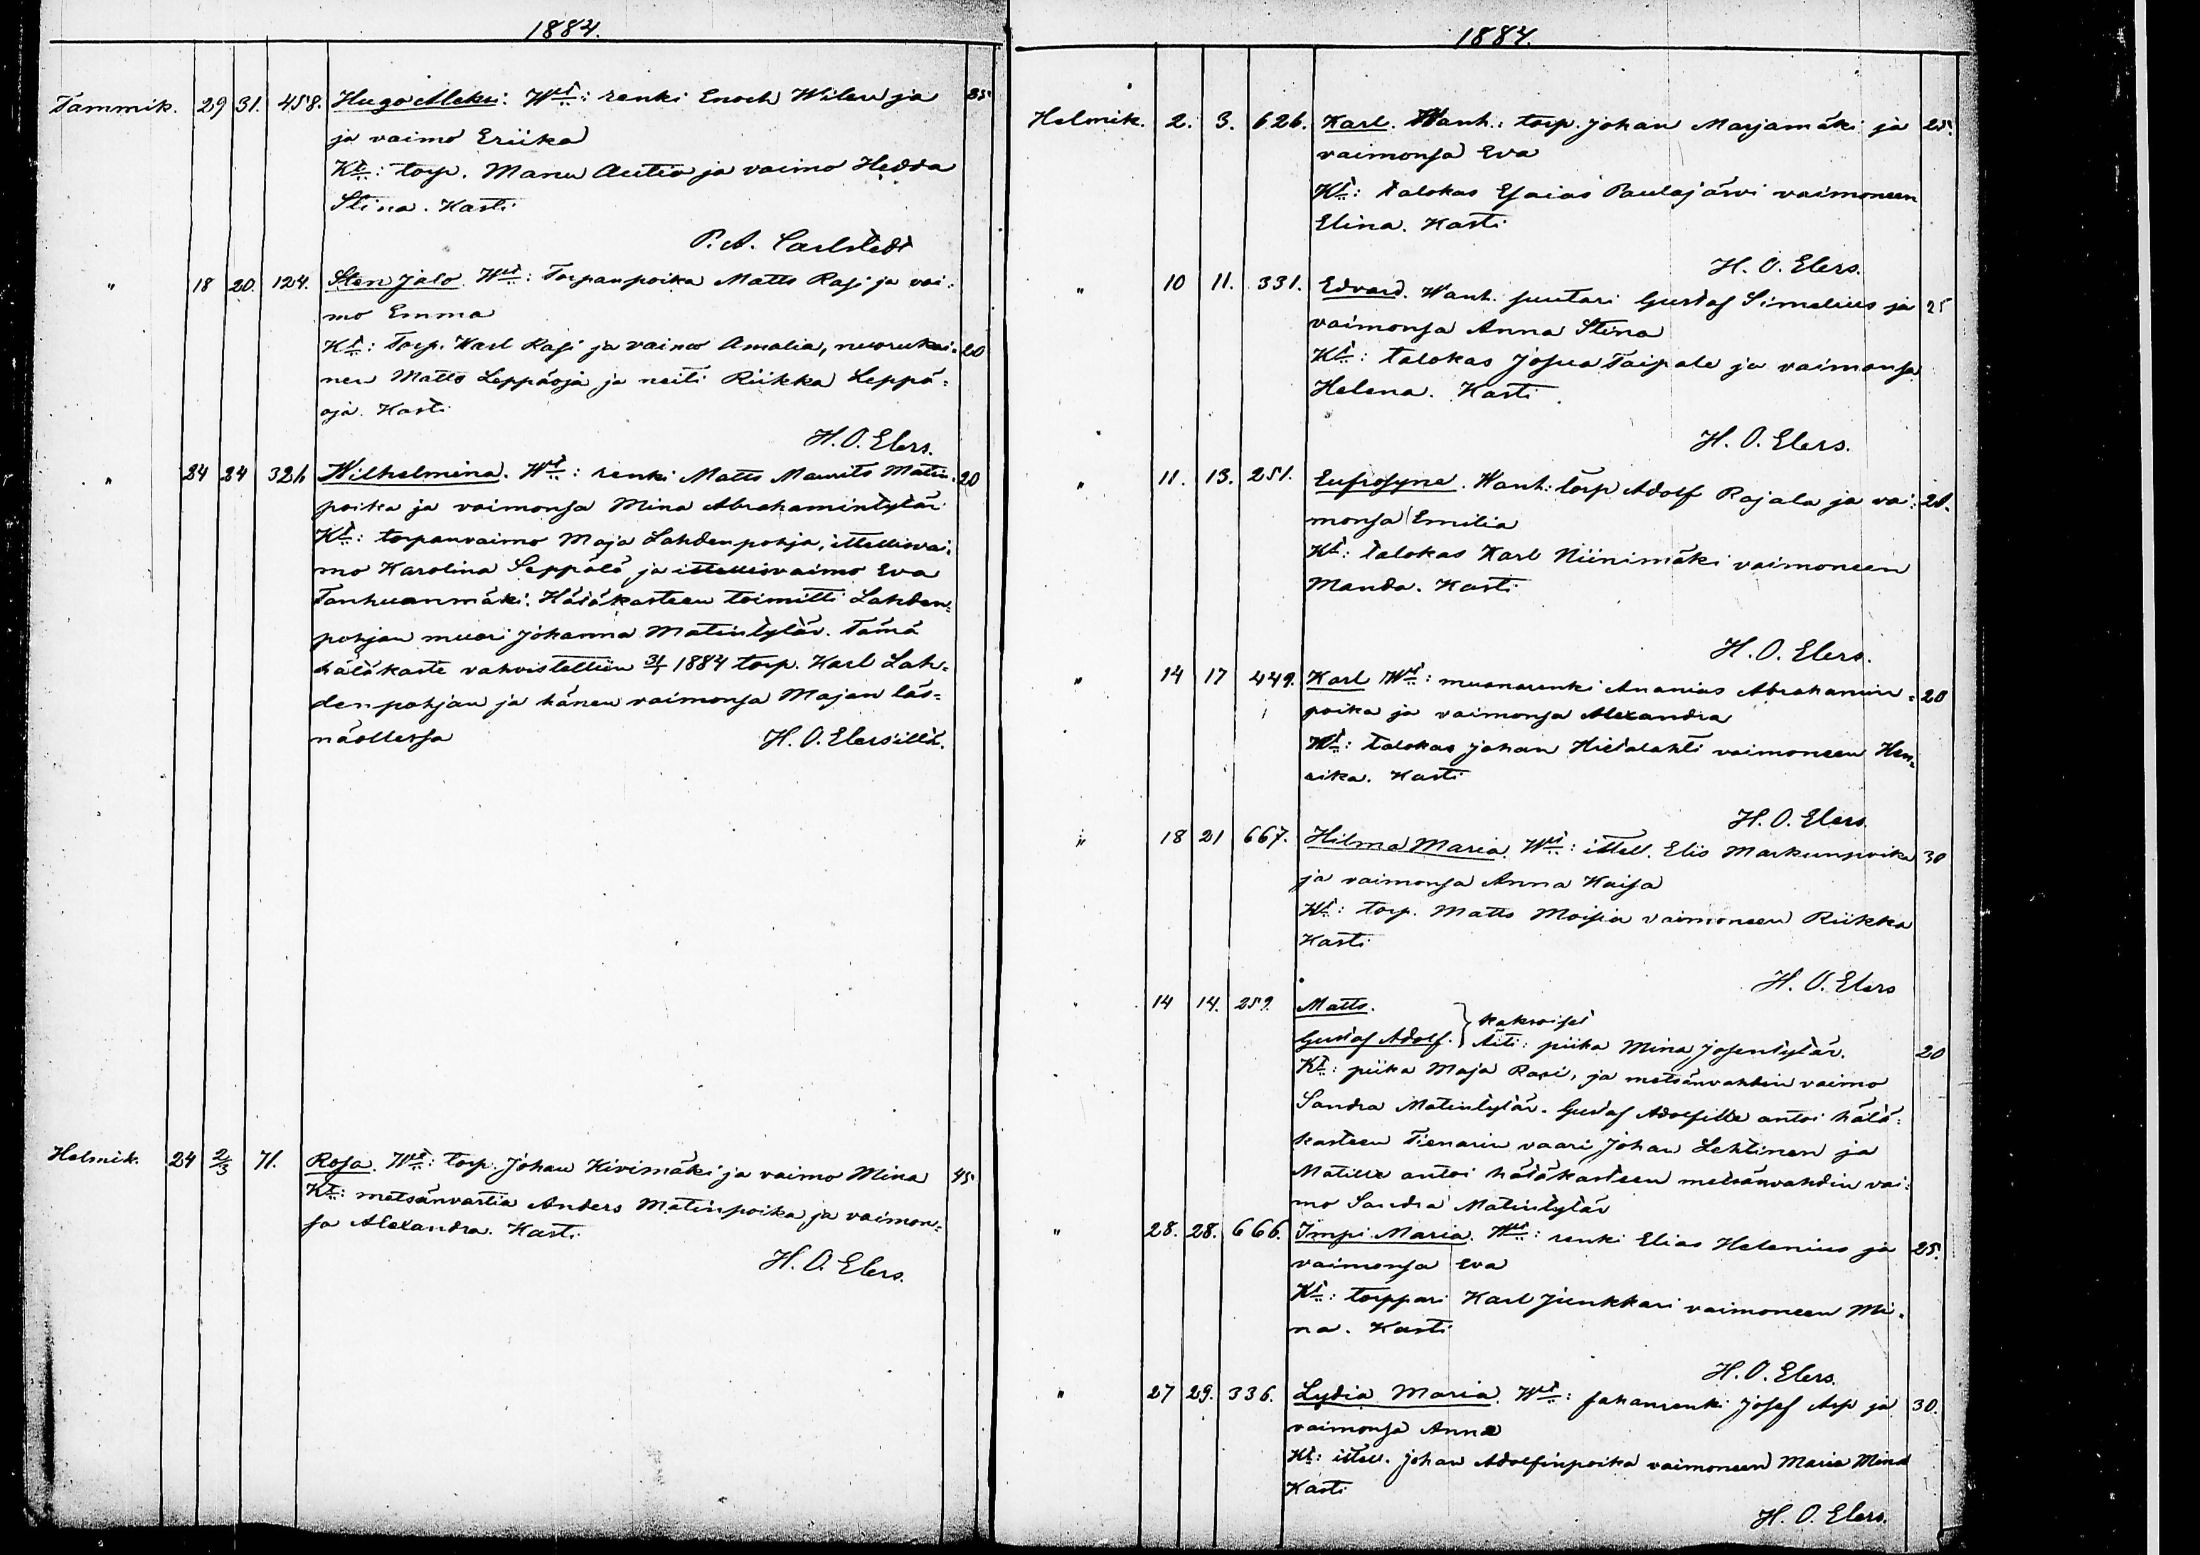 1884.
Tammik. 29 31. 458. Hugo Aleksi. Wt: renki Enoch Wilen ja 25
ja vaimo Eriika
Kt: torp. Manu Autio ja vaimo Hedda
Stina. Kasti
P. A. Carlstedt
" 18 20. 124. Sten Jalo. Wt: Torpanpoika Matts Rasi ja vai-
mo Emma
Kt: Torp. Karl Rasi ja vaimo Amalia, nuorukai- 20
nen Matts Leppäoja ja neiti Riikka Leppä-
oja. Kasti
H. O. Elers.
" 24 24 326 Wilhelmina. Wt: renki Matts Maurits Matin- 20
poika ja vaimonsa Mina Abrahamintytär
Kt: torpanvaimo Maja Lahdenpohja, ittellisvai-
mo Karolina Seppälä ja ittellisvaimo Eva
Tanhuanmäki. Hätäkasteen toimitti Lahden-
pohjan muori Johanna Matintytär. Tämä
hätäkaste vahvistettiin 31/1 1884 torp. Karl Lah-
denpohjan ja hänen vaimonsa Majan läs-
näollessa H. O. Elersiltä.
Helmik. 24 2/3 71. Rosa. Wt: torp. Johan Kivimäki ja vaimo Mina 45
Kt: metsänvartia Anders Matinpoika ja vaimon-
sa Alexandra. Kasti
H. O. Elers.
1884.
Helmik. 2. 3. 626. Karl. Wanh.: torp. Johan Marjamäki ja 25.
vaimonsa Eva
Kt: talokas Esaias Paulajärvi vaimoneen
Elina. Kasti
H. O. Elers.
" 10 11. 331. Edvard. Wanh. suutari Gustaf Simelius ja 25
vaimonsa Anna Stina
Kt: talokas Josua Taipale ja vaimonsa
Helena. Kasti
H. O. Elers.
" 11. 13. 251. Eufrosyne. Wanh: torp Adolf Rajala ja vai- 20.
monsa Emilia
Kt: talokas Karl Niinimäki vaimoneen
Manda. Kasti
H. O. Elers.
" 14 17 449. Karl Wt: muonarenki Ananias Abrahamin- 20
poika ja vaimonsa Alexandra
Kt: talokas Johan Hietalahti vaimoneen Hen-
rika. Kasti
H. O. Elers
" 18 21 667. Hilma Maria. Wt: ittell. Elis Markunpoika 30
ja vaimonsa Anna Kaisa
Kt: torp. Matts Moisia vaimoneen Riikka
Kasti
H. O. Elers
" 14 14. 259. Matts.
kaksoiset
Gustaf Adolf. Äiti: piika Mina Josentytär. 20
Kt: piika Maja Rasi, ja metsänvahdin vaimo
Sandra Matintytär. Gustaf Adolfille antoi hätä-
kasteen Tienarin vaari Johan Lehtinen ja
Matille antoi hätäkasteen metsänvahdin vai-
mo Sandra Matintytär
" 28. 28. 666. Impi Maria. Wt: renki Elias Helenius ja 25.
vaimonsa Eva
Kt: torppari Karl Junkkari vaimoneen Mi-
na. Kasti
H. O. Elers.
" 27 29. 336. Lydia Maria. Wt: sahanrenki Josef Asp ja 30.
vaimonsa Anna
Kt: ittell. Johan Adolfinpoika vaimoneen Maria Mina
Kasti
H. O. Elers.